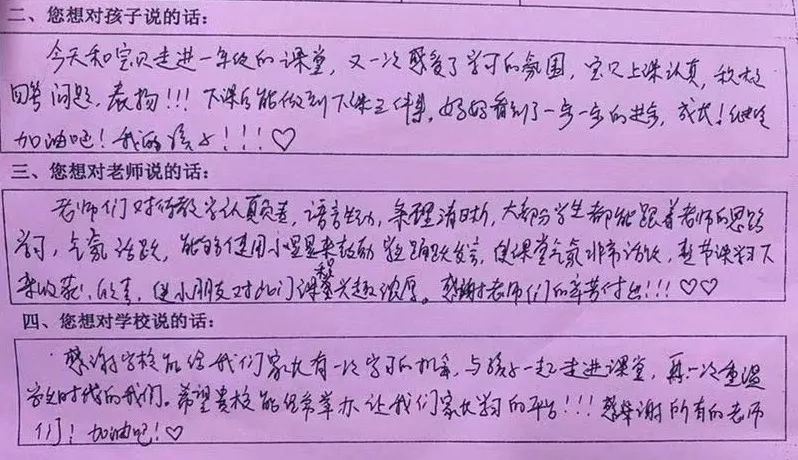 二、您想对孩子说的话：
今天和宝贝走进一年级的课堂，又一次感受了学习的氛围，宝贝上课认真，积极
回答问题，表扬!!! 下课后能做到下课三件事，妈妈看到了一步一步的进步，成长！继续
加油吧！我的孩子!!!!♡
三、您想对老师说的话：
老师们对待教学认真负责，语言生动，条理清晰，大部分学生都能跟着老师的思路
学习，气氛活跃，能够使用小星星来鼓励学生踊跃发言，使课堂气氛非常活跃，整节课学习下
来收获，使小朋友对此门课堂和兴趣浓厚。感谢老师们的辛苦付出!!!♡♡
四、您想对学校说的话：
感谢学校能给我们家长有一次学习的机会，与孩子一起走进课堂，再一次重温
学生时代的我们。希望贵校能经常举办让我们家长学习的平台!!! 感谢所有的老师
们！加油吧！♡